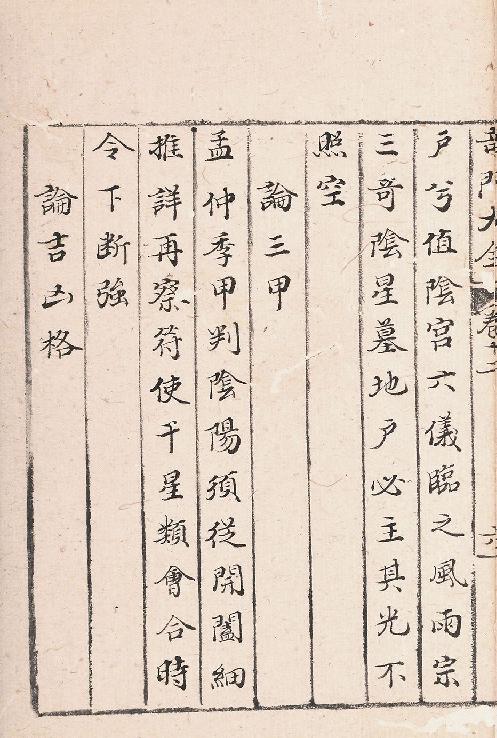 奇門大全 卷十二
戶兮值陰宮六儀臨之風雨宗
三奇陰星墓地戶必主其光不
照空
論三甲
孟仲季甲判陰陽須從開闔細
推詳再察符使干星類會合時
令下断強
論吉凶格